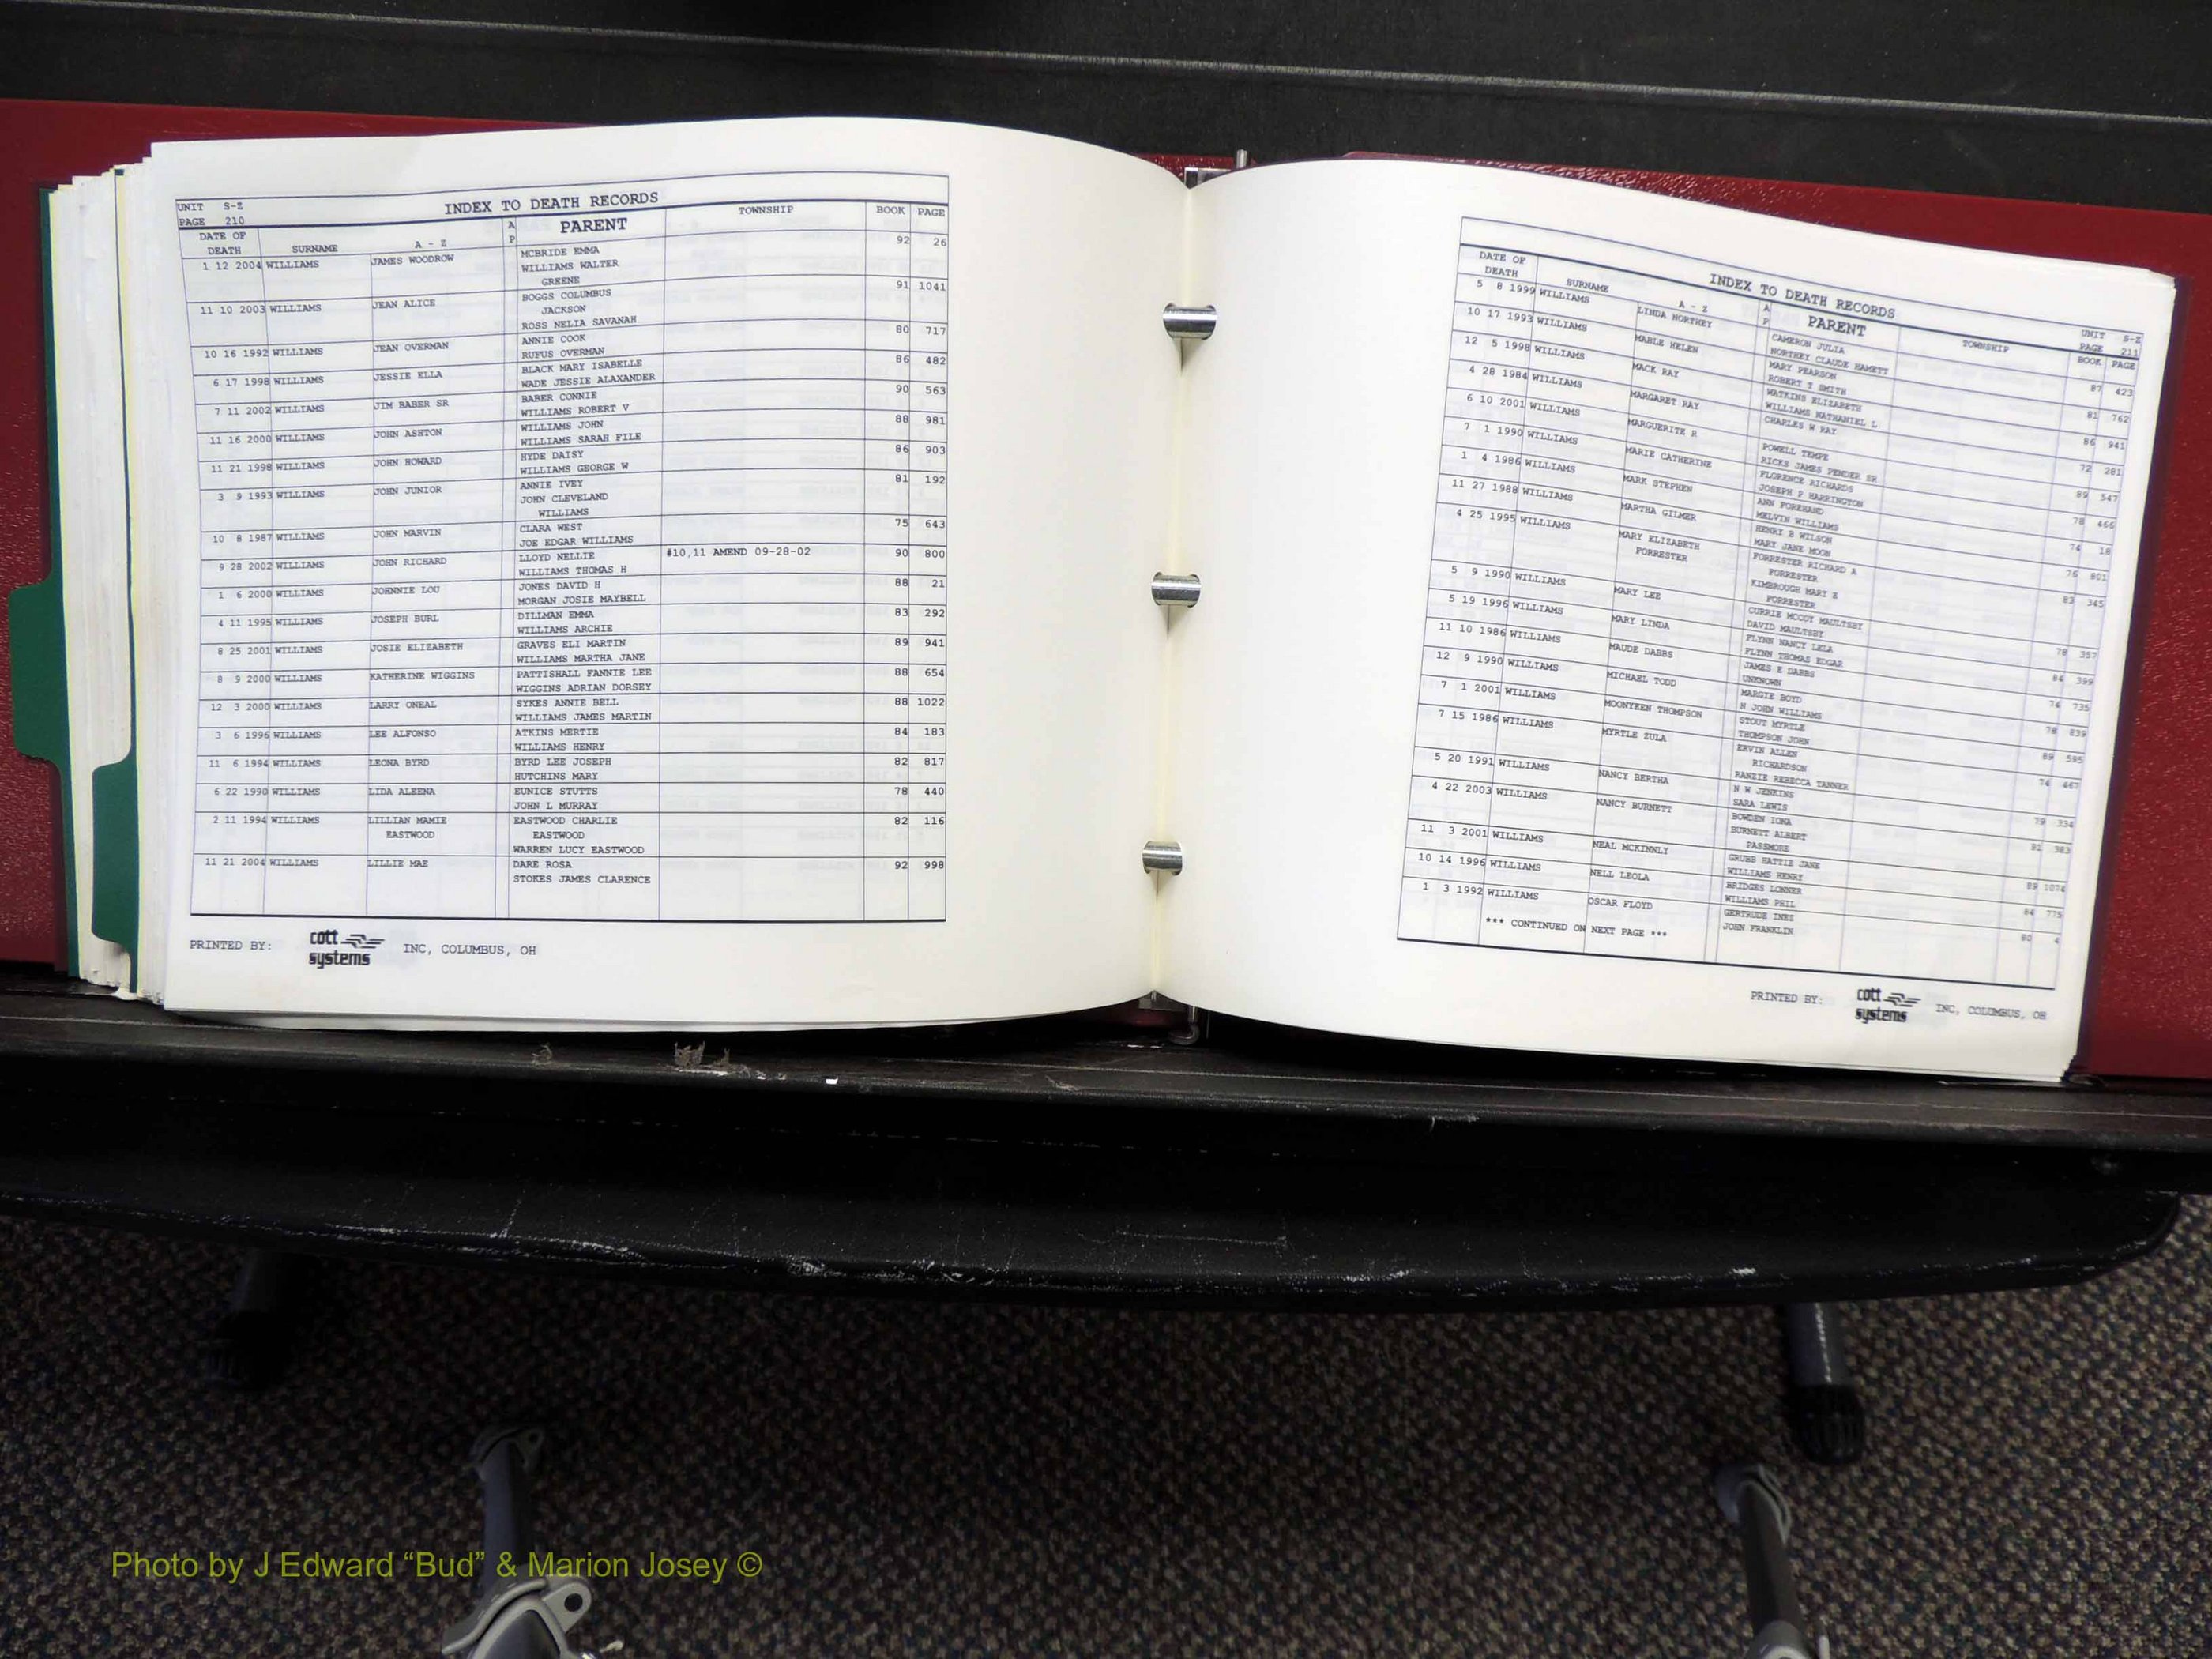 UNIT S-Z
PAGE 210
INDEX TO DEATH RECORDS
DATE OF DEATH SURNAME A - Z A P PARENT TOWNSHIP BOOK PAGE
1 12 2004 WILLIAMS JAMES WOODROW MCBRIDE EMMA 92 26
WILLIAMS WALTER
GREENE
11 10 2003 WILLIAMS JEAN ALICE BOGGS COLUMBUS 91 1041
JACKSON
ROSS NELIA SAVANAH
10 16 1992 WILLIAMS JEAN OVERMAN ANNIE COOK 80 717
RUFUS OVERMAN
6 17 1998 WILLIAMS JESSIE ELLA BLACK MARY ISABELLE 86 482
WADE JESSIE ALAXANDER
7 11 2002 WILLIAMS JIM BABER SR BABER CONNIE 90 563
WILLIAMS ROBERT V
11 16 2000 WILLIAMS JOHN ASHTON WILLIAMS JOHN 88 981
WILLIAMS SARAH FILE
11 21 1998 WILLIAMS JOHN HOWARD HYDE DAISY 86 903
WILLIAMS GEORGE W
3 9 1993 WILLIAMS JOHN JUNIOR ANNIE IVEY 81 192
JOHN CLEVELAND
WILLIAMS
10 8 1987 WILLIAMS JOHN MARVIN CLARA WEST 75 643
JOE EDGAR WILLIAMS
9 28 2002 WILLIAMS JOHN RICHARD LLOYD NELLIE #10,11 AMEND 09-28-02 90 800
WILLIAMS THOMAS H
1 6 2000 WILLIAMS JOHNNIE LOU JONES DAVID H 88 21
MORGAN JOSIE MAYBELL
4 11 1995 WILLIAMS JOSEPH BURL DILLMAN EMMA 83 292
WILLIAMS ARCHIE
8 25 2001 WILLIAMS JOSIE ELIZABETH GRAVES ELI MARTIN 89 941
WILLIAMS MARTHA JANE
8 9 2000 WILLIAMS KATHERINE WIGGINS PATTISHALL FANNIE LEE 88 654
WIGGINS ADRIAN DORSEY
12 3 2000 WILLIAMS LARRY ONEAL SYKES ANNIE BELL 88 1022
WILLIAMS JAMES MARTIN
3 6 1996 WILLIAMS LEE ALFONSO ATKINS MERTIE 84 183
WILLIAMS HENRY
11 6 1994 WILLIAMS LEONA BYRD BYRD LEE JOSEPH 82 817
HUTCHINS MARY
6 22 1990 WILLIAMS LIDA ALEENA EUNICE STUTTS 78 440
JOHN L MURRAY
2 11 1994 WILLIAMS LILLIAN MAMIE EASTWOOD CHARLIE 82 116
EASTWOOD EASTWOOD
WARREN LUCY EASTWOOD
11 21 2004 WILLIAMS LILLIE MAE DARE ROSA 92 998
STOKES JAMES CLARENCE
PRINTED BY: cott systems INC, COLUMBUS, OH
INDEX TO DEATH RECORDS
UNIT S-Z
PAGE 211
DATE OF DEATH SURNAME A - Z A P PARENT TOWNSHIP BOOK PAGE
5 8 1999 WILLIAMS LINDA NORTHEY CAMERON JULIA 87 423
NORTHEY CLAUDE HAMETT
10 17 1993 WILLIAMS MABLE HELEN MARY PEARSON 81 762
ROBERT T SMITH
12 5 1998 WILLIAMS MACK RAY WATKINS ELIZABETH 86 941
WILLIAMS NATHANIEL L
4 28 1984 WILLIAMS MARGARET RAY CHARLES W RAY 72 281
6 10 2001 WILLIAMS MARGUERITE R POWELL TEMPE 89 547
RICKS JAMES PENDER SR
7 1 1990 WILLIAMS MARIE CATHERINE FLORENCE RICHARDS 78 466
JOSEPH P HARRINGTON
1 4 1986 WILLIAMS MARK STEPHEN ANN FOREHAND 74 18
MELVIN WILLIAMS
11 27 1988 WILLIAMS MARTHA GILMER HENRY B WILSON 76 801
MARY JANE MOON
4 25 1995 WILLIAMS MARY ELIZABETH FORRESTER RICHARD A 83 345
FORRESTER FORRESTER
KIMBROUGH MARY E
FORRESTER
5 9 1990 WILLIAMS MARY LEE CURRIE MCCOY MAULTSBY 78 357
DAVID MAULTSBY
5 19 1996 WILLIAMS MARY LINDA FLYNN NANCY LELA 84 399
FLYNN THOMAS EDGAR
11 10 1986 WILLIAMS MAUDE DABBS JAMES E DABBS 74 735
UNKNOWN
12 9 1990 WILLIAMS MICHAEL TODD MARGIE BOYD 78 839
N JOHN WILLIAMS
7 1 2001 WILLIAMS MOONYEEN THOMPSON STOUT MYRTLE 89 595
THOMPSON JOHN
7 15 1986 WILLIAMS MYRTLE ZULA ERVIN ALLEN 74 467
RICHARDSON
RANZIE REBECCA TANNER
5 20 1991 WILLIAMS NANCY BERTHA N W JENKINS 79 334
SARA LEWIS
4 22 2003 WILLIAMS NANCY BURNETT BOWDEN IONA 91 383
BURNETT ALBERT
PASSMORE
11 3 2001 WILLIAMS NEAL MCKINNLY GRUBB HATTIE JANE 89 1074
WILLIAMS HENRY
10 14 1996 WILLIAMS NELL LEOLA BRIDGES LONNER 84 775
WILLIAMS PHIL
1 3 1992 WILLIAMS OSCAR FLOYD GERTRUDE INEZ 80 4
JOHN FRANKLIN
*** CONTINUED ON NEXT PAGE ***
PRINTED BY: cott systems INC, COLUMBUS, OH
Photo by J Edward “Bud” & Marion Josey ©